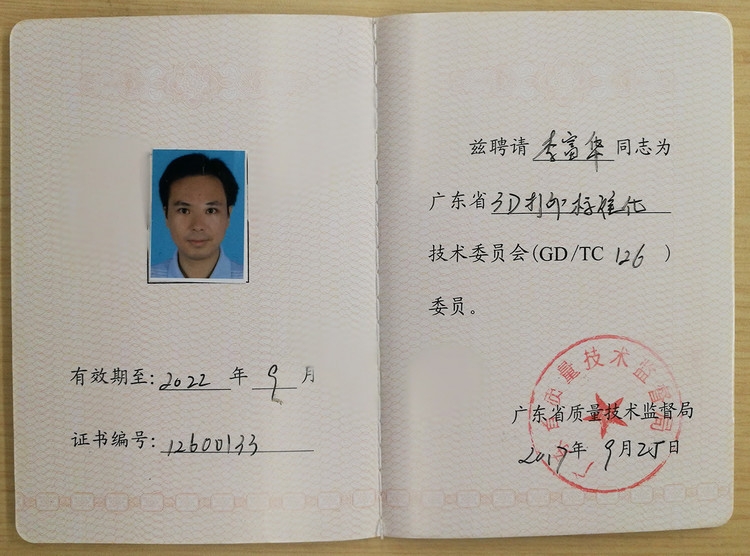 有效期至:2022年9月
证书编号:12600133
兹聘请李富华同志为
广东省3D打印标准化
技术委员会(GD/TC 126)
委员。
广东省质量技术监督局
广东省质量技术监督局
2017年9月25日